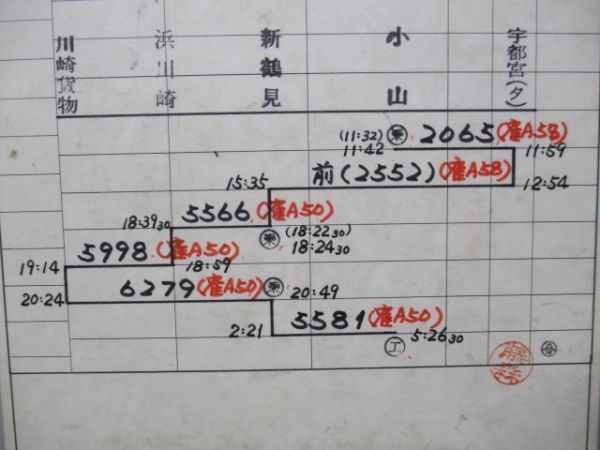 川崎貨物 浜川崎 新鶴見 小山 宇都宮(タ)
(11:32) 乗 2065(雀A58)
11:42 11:59
前(2552)(雀A58)
15:35 12:54
5566(雀A50)
18:39 30 乗 (18:22 30)
18:24 30
5998(雀A50)
19:14 18:59
6279(雀A50) 乗 20:49
20:24
5581(雀A50)
2:21 5:26 30
工